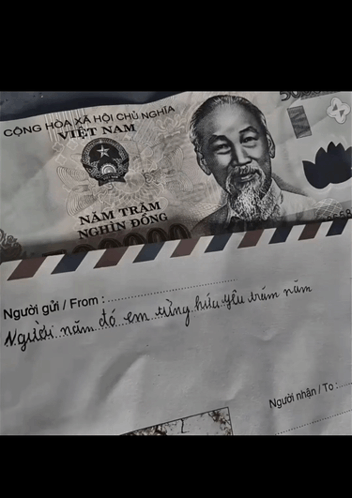 CỘNG HÒA XÃ HỘI CHỦ NGHĨA
VIỆT NAM
NĂM TRĂM
NGHÌN ĐỒNG
Người gửi / From :
Người năm đó em từng hứa yêu trăm năm
Người nhận / To :